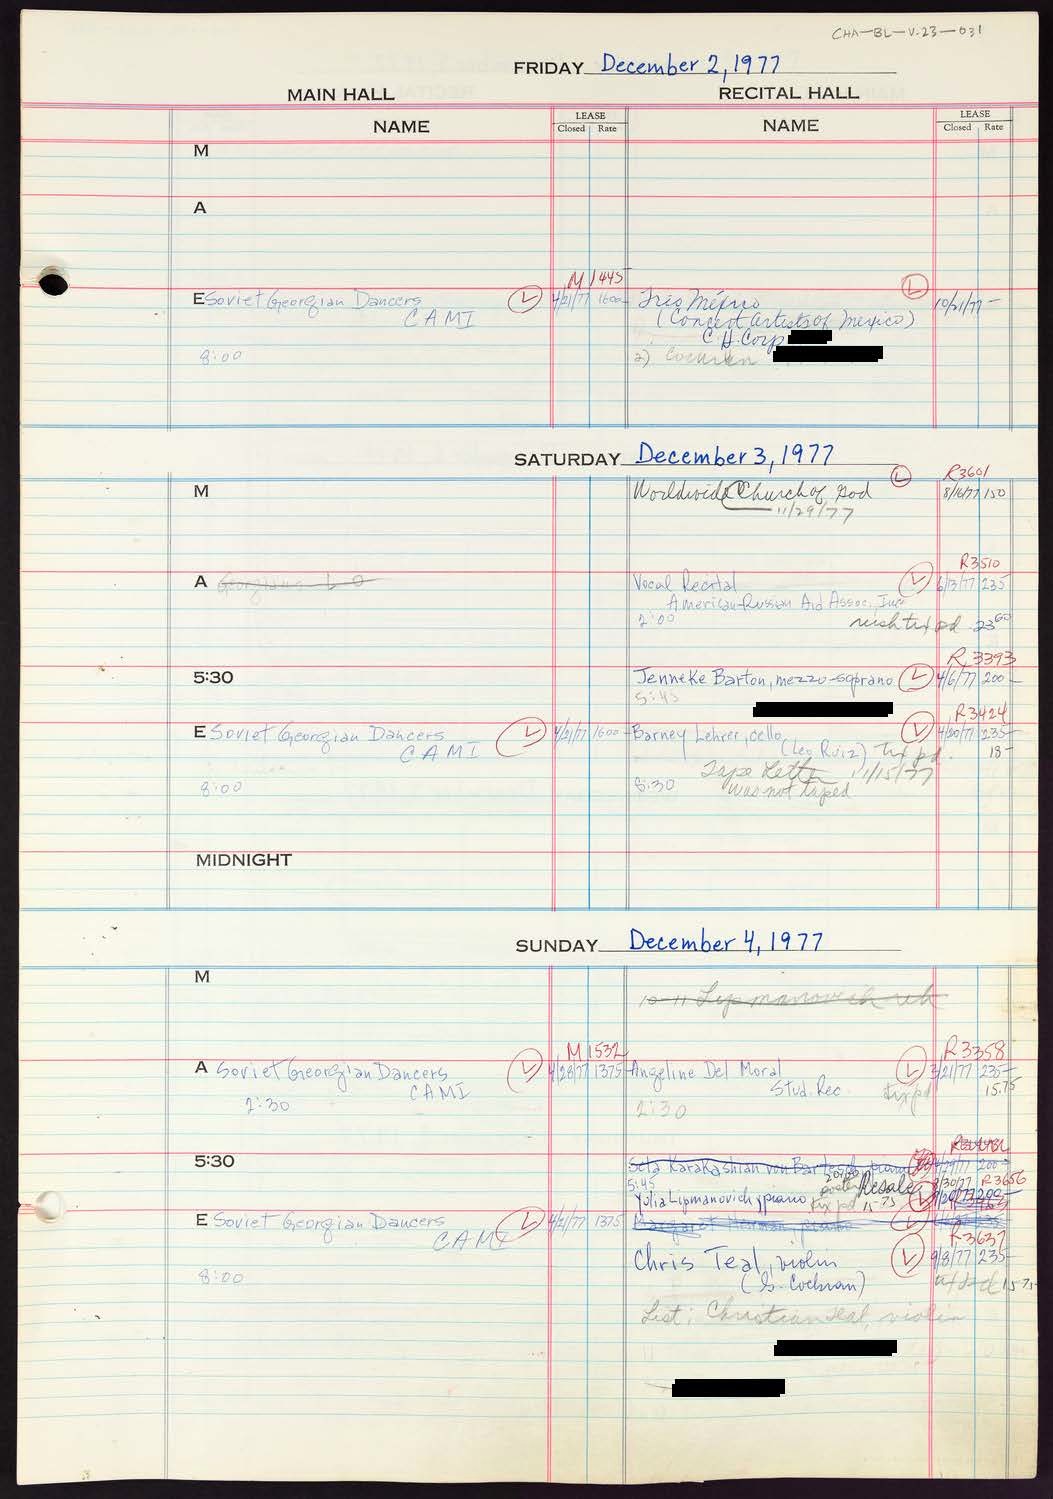 CHA-BL-V.23-031
FRIDAY December 2, 1977
MAIN HALL RECITAL HALL
NAME LEASE Closed Rate NAME LEASE Closed Rate
M
A
M 1445
E Soviet Georgian Dancers L 4/21/77 1600- Trio México L 10/21/77 -
CAMI (Concert Artists of Mexico)
C H Corp
8:00 2) Cochran
SATURDAY December 3, 1977
R3601
M Worldwide Church of God L 8/16/77 150
11/29/77
R3510
A Georgians Vocal Recital L 6/13/77 235
American-Russian Aid Assoc., Inc
2:00 rush tix pd. 23 60
R 3393
5:30 Jenneke Barton, mezzo-soprano L 4/6/77 200-
5:45
R3424
E Soviet Georgian Dancers L 4/21/77 1600- Barney Lehrer, cello L 4/20/77 235-
CAMI (Leo Ruiz) Tix pd. 18-
Tape Letter 11/15/77
8:00 8:30 was not taped
MIDNIGHT
SUNDAY December 4, 1977
M
10-11 Lipmanovich reh
M 1532 R3358
A Soviet Georgian Dancers L 4/28/77 1375- Angeline Del Moral L 3/21/77 235-
CAMI Stud. Rec tix pd 15.75
2:30 2:30
5:30 Seta Karakashian von Bartesch, piano 200-
5:45 Resale R3656
Yulia Lipmanovich, piano tix pd 15.75 L
E Soviet Georgian Dancers L 4/21/77 1375- Margaret piano L
CAMI R3637
Chris Teal, violin L 9/8/77 235-
8:00 (G. Cochran) 15.75
List: Christian Teal, violin